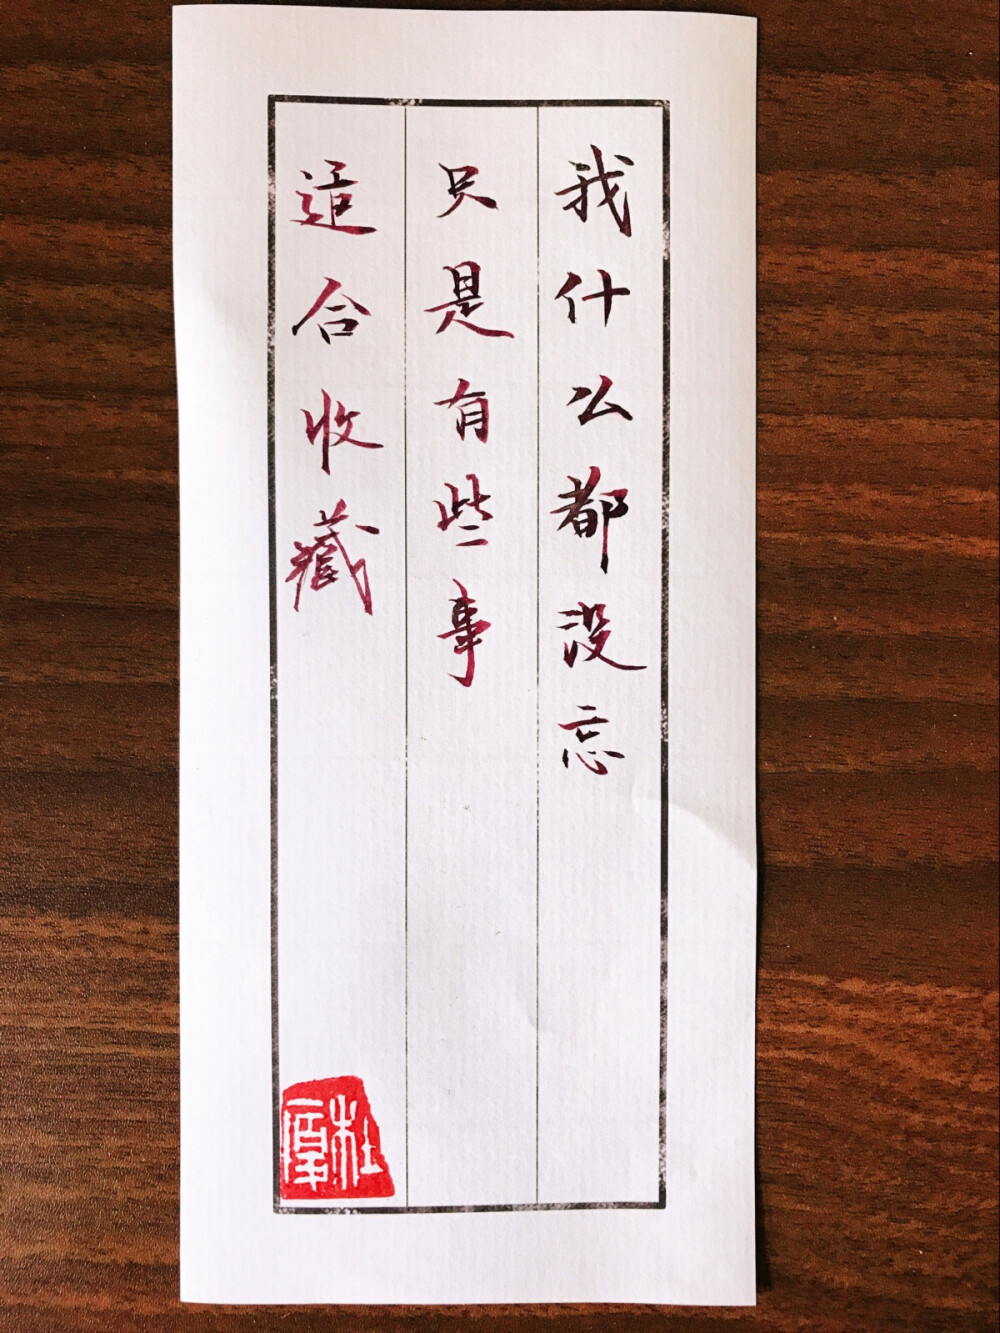 我什么都没忘
只是有些事
适合收藏